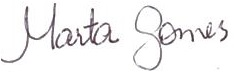 Marta Gomes